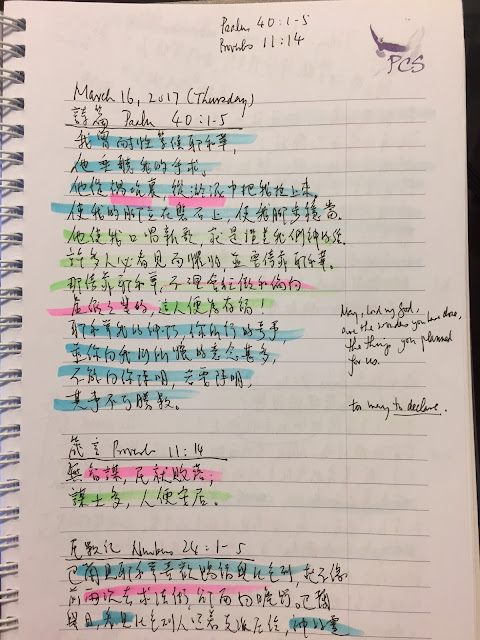 Psalm 40:1-5
Proverbs 11:14
PCS
March 16, 2017 (Thursday)
詩篇 Psalm 40:1-5
我曾耐性等候耶和華,
他垂聽我的呼求。
他從禍坑裏,從淤泥中把我拉上來,
使我的腳立在磐石上,使我腳步穩當。
他使我口唱新歌,就是讚美我們神的話。
許多人必看見而懼怕,並要倚靠耶和華。
那倚靠耶和華,不理會狂傲和偏向
虛假之輩的,這人便為有福!
耶和華我的神阿,你所行的奇事,
並你向我們所懷的意念甚多,
不能向你陳明,若要陳明,
其事不可勝數。
Many, Lord my God,
are the wonders you have done,
the things you planned
for us.
too many to declare.
箴言 Proverb 11:14
無智謀,民就敗落;
謀士多,人便安居。
民數記 Numbers 24:1-5
巴蘭見耶和華喜歡賜福與以色列,就不像
前兩次去求法術,卻面向曠野。巴蘭
舉目,看見以色列人照着支派居住,神的靈